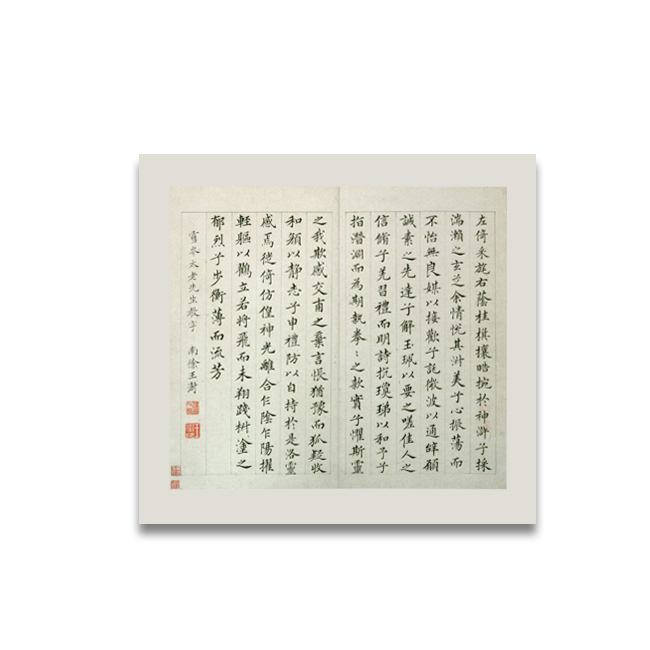 左倚采旄右蔭桂旗攘皓捥於神滸兮採
湍瀨之玄芝余情恱其淑美兮心振蕩而
不怡無良媒以接歡兮託微波以通辭願
誠素之先達兮解玉珮以要之嗟佳人之
信脩兮羌習禮而明詩抗瓊珶以和予兮
指潛淵而為期執拳〻之款實兮懼斯靈
之我欺感交甫之棄言悵猶豫而狐疑收
和顏以靜志兮申禮防以自持於是洛靈
感焉徙倚仿偟神光離合乍陰乍陽擢
輕軀以鶴立若將飛而未翔踐椒塗之
郁烈兮步衡薄而流芳
岑太老先生教字 南徐王澍